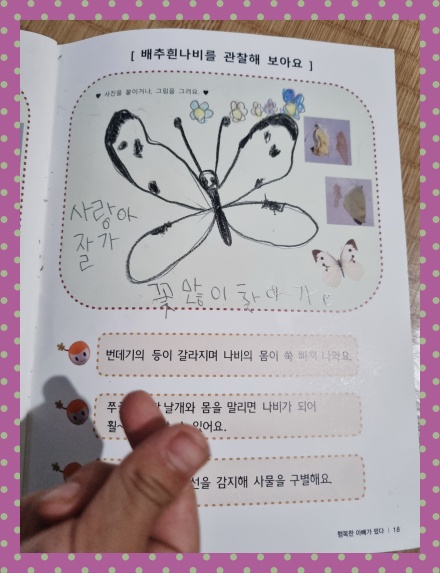 [ 배추흰나비를 관찰해 보아요 ]
♥ 사진을 붙이거나, 그림을 그려요. ♥
사랑아
잘가
꽃 많이
번데기의 등이 갈라지며 나비의 몸이 쏙 빠져 나와요.
날개와 몸을 말리면 나비가 되어
있어요.
감지해 사물을 구별해요.
행복한 아빠가 떴다 | 18